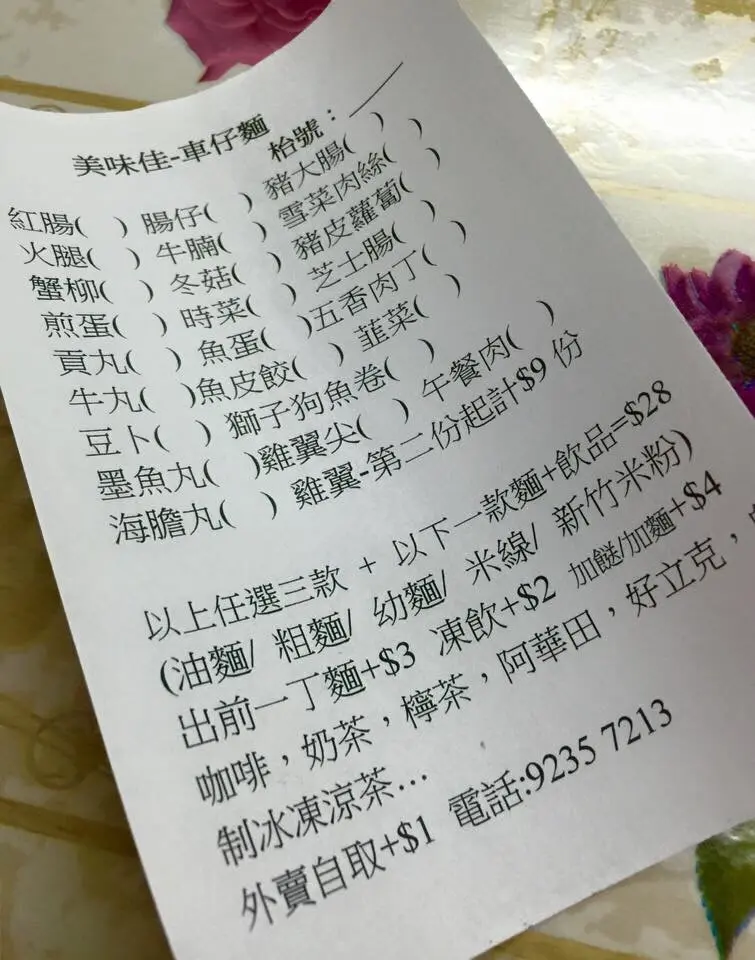 美味佳-車仔麵
枱號：____
紅腸( ) 腸仔( ) 豬大腸( )
火腿( ) 牛腩( ) 雪菜肉絲( )
蟹柳( ) 冬菇( ) 豬皮蘿蔔( )
煎蛋( ) 時菜( ) 芝士腸( )
貢丸( ) 魚蛋( )五香肉丁( )
牛丸( )魚皮餃( ) 韮菜( )
豆卜( ) 獅子狗魚卷( )
墨魚丸( )雞翼尖( ) 午餐肉( )
海膽丸( ) 雞翼-第二份起計$9 份
以上任選三款 + 以下一款麵+飲品=$28
(油麵/ 粗麵/ 幼麵/ 米線/ 新竹米粉)
出前一丁麵+$3 凍飲+$2 加餸/加麵+$4
咖啡，奶茶，檸茶，阿華田，好立克，
制冰凍涼茶…
外賣自取+$1 電話:9235 7213